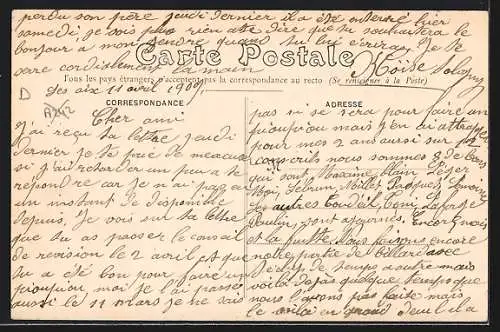 perdu son père jeudi dernier il a été enterré hier
samedi, je vois plus rien a te dire que tu souhaitera le
bonjour a mon gendre quand tu lui écriras. Je te
serre cordialement la main
Carte Postale
Tous les pays étrangers n'acceptent pas la correspondance au recto (Se renseigner à la Poste)
D
11 avril 1909
CORRESPONDANCE
ADRESSE
Cher ami
j'ai reçu ta lettre jeudi
dernier je te prie de
si j'ai retarder un peu a te
répondre car je n'ai pas eu
un instant de disponible
depuis. Je vois sur ta lettre
que tu as passer le conseil
de revision le 2 avril et que
tu a été bon pour faire un
pioupiou moi je l'ai passé
aussi le 11 mars je ne sais
pas si se sera pour faire un
pioupiou mais j'en ai attrapé
pour mes 2 ans aussi sur
conscrits nous sommes 8 de bons
qui sont Maxime Blain, Leger
Moi, Lebrun, Millet, Jacques
les autres
Paulin, sont ajournés. Encore
et la fuitte. Nous faisons encore
notre partie de billard avec
de temps a autre mais
voila déja quelque temps que
nous l'avons pas faite mais
le voila en grand deuil il a